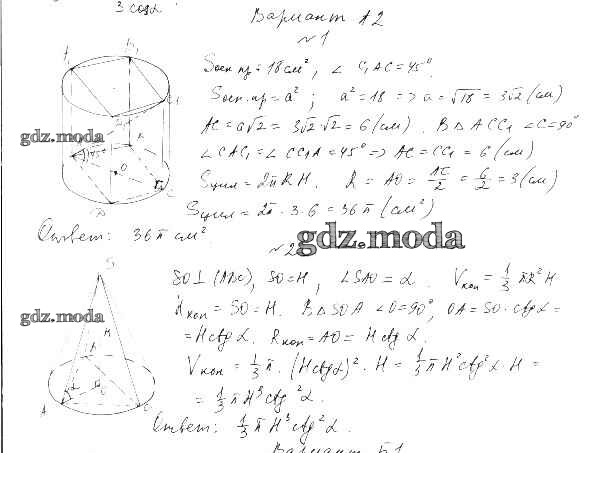 3 cosα
Вариант А2
№1
Sосн.пр = 18 см², ∠ C₁AC = 45°.
Sосн.пр = a²; a² = 18 => a = √18 = 3√2 (см)
AC = a√2 = 3√2·√2 = 6 (см). В Δ ACC₁ ∠C = 90°
∠CAC₁ = ∠CC₁A = 45° => AC = CC₁ = 6 (см)
Sцил = 2πRH. R = AO = AC/2 = 6/2 = 3 (см)
Sцил = 2π · 3 · 6 = 36π (см²)
Ответ: 36π см².
№2
SO⊥(ABC), SO = H, ∠SAO = α. Vкон = 1/3 πR²H
Hкон = SO = H. В Δ SOA ∠O = 90°, OA = SO · ctgα =
= H ctg α. Rкон = AO = H ctg α.
Vкон = 1/3 π · (H ctgα)² · H = 1/3 π H² ctg²α · H =
= 1/3 π H³ ctg²α.
Ответ: 1/3 π H³ ctg²α.
Вариант Б1
gdz.moda
gdz.moda
gdz.moda